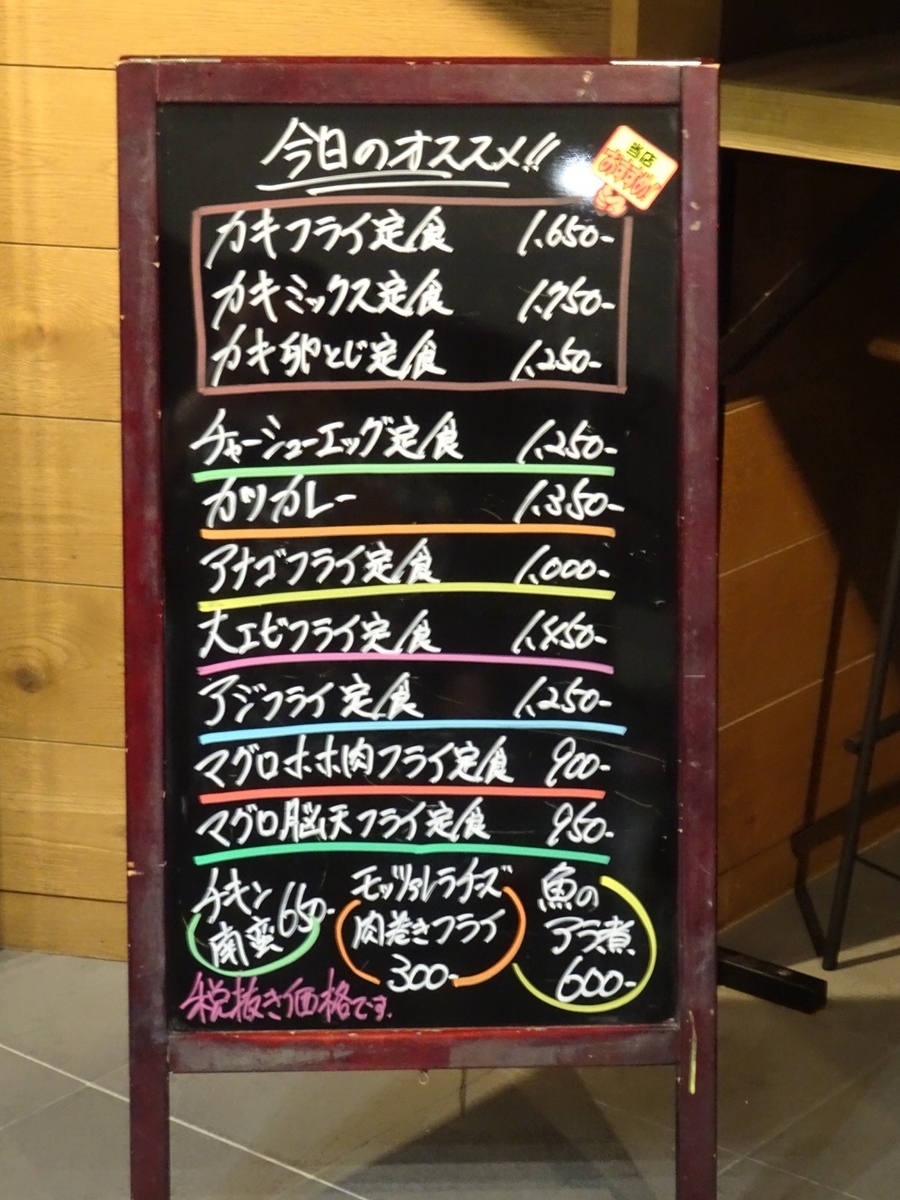 今日のオススメ!!
当店
おすすめ
カキフライ定食 1,650-
カキミックス定食 1,750-
カキ卵とじ定食 1,250-
チャーシューエッグ定食 1,250-
カツカレー 1,350-
アナゴフライ定食 1,000-
大エビフライ定食 1,450-
アジフライ定食 1,250-
マグロホホ肉フライ定食 900-
マグロ脳天フライ定食 950-
チキン
南蛮 650-
モッツァレラチーズ
肉巻きフライ
300-
魚の
アラ煮
600-
税抜き価格です.